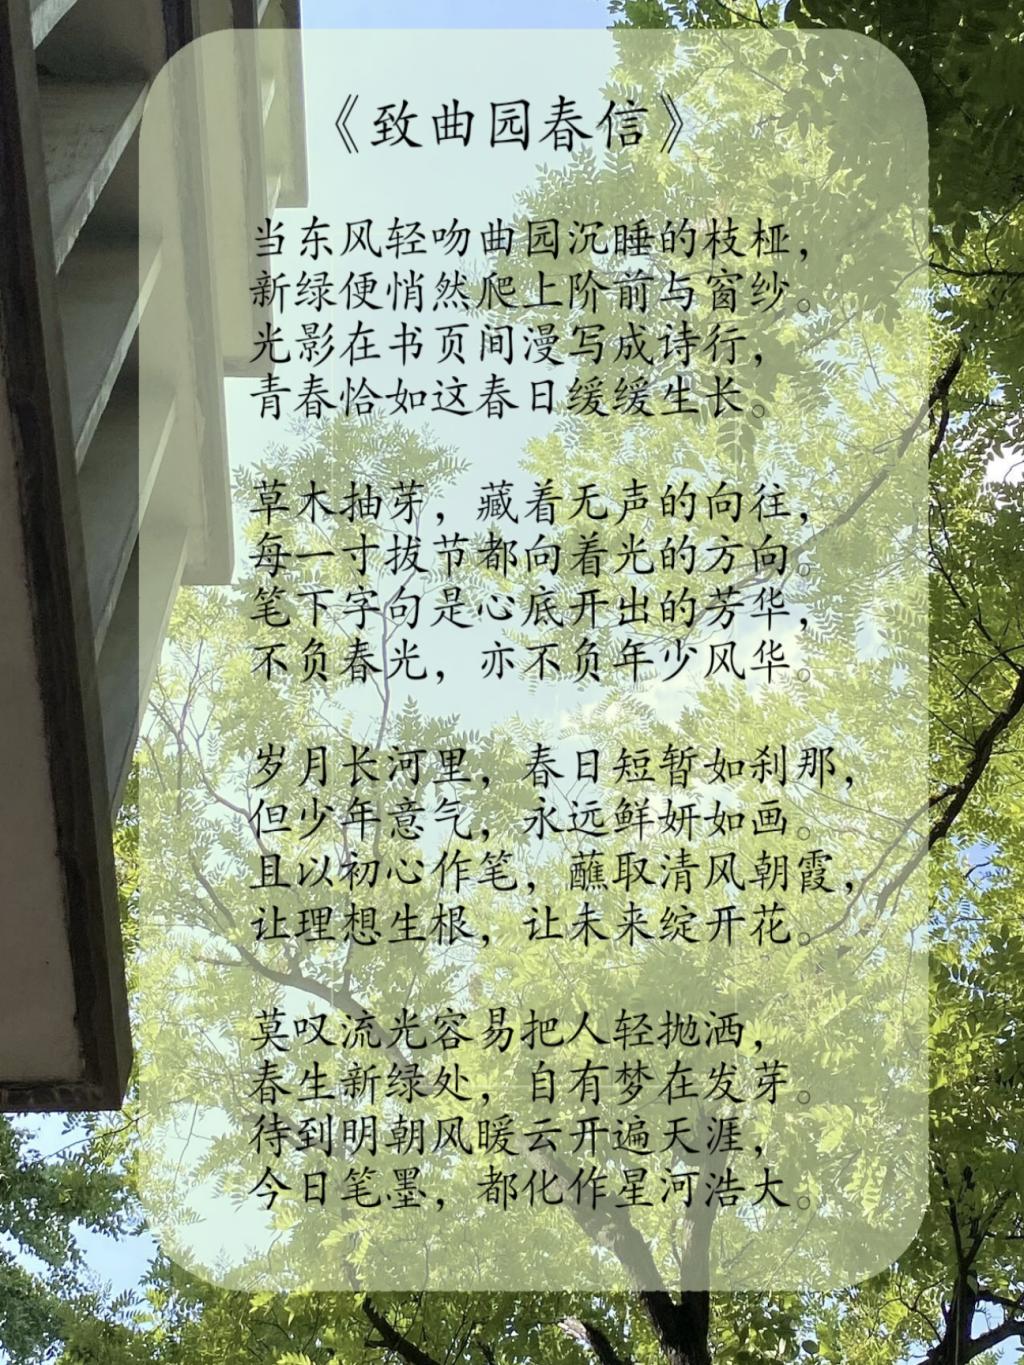 《致曲园春信》
当东风轻吻曲园沉睡的枝桠，
新绿便悄然爬上阶前与窗纱。
光影在书页间漫写成诗行，
青春恰如这春日缓缓生长。
草木抽芽，藏着无声的向往，
每一寸拔节都向着光的方向。
笔下字句是心底开出的芳华，
不负春光，亦不负年少风华。
岁月长河里，春日短暂如刹那，
但少年意气，永远鲜妍如画。
且以初心作笔，蘸取清风朝霞，
让理想生根，让未来绽开花。
莫叹流光容易把人轻抛洒，
春生新绿处，自有梦在发芽。
待到明朝风暖云开遍天涯，
今日笔墨，都化作星河浩大。